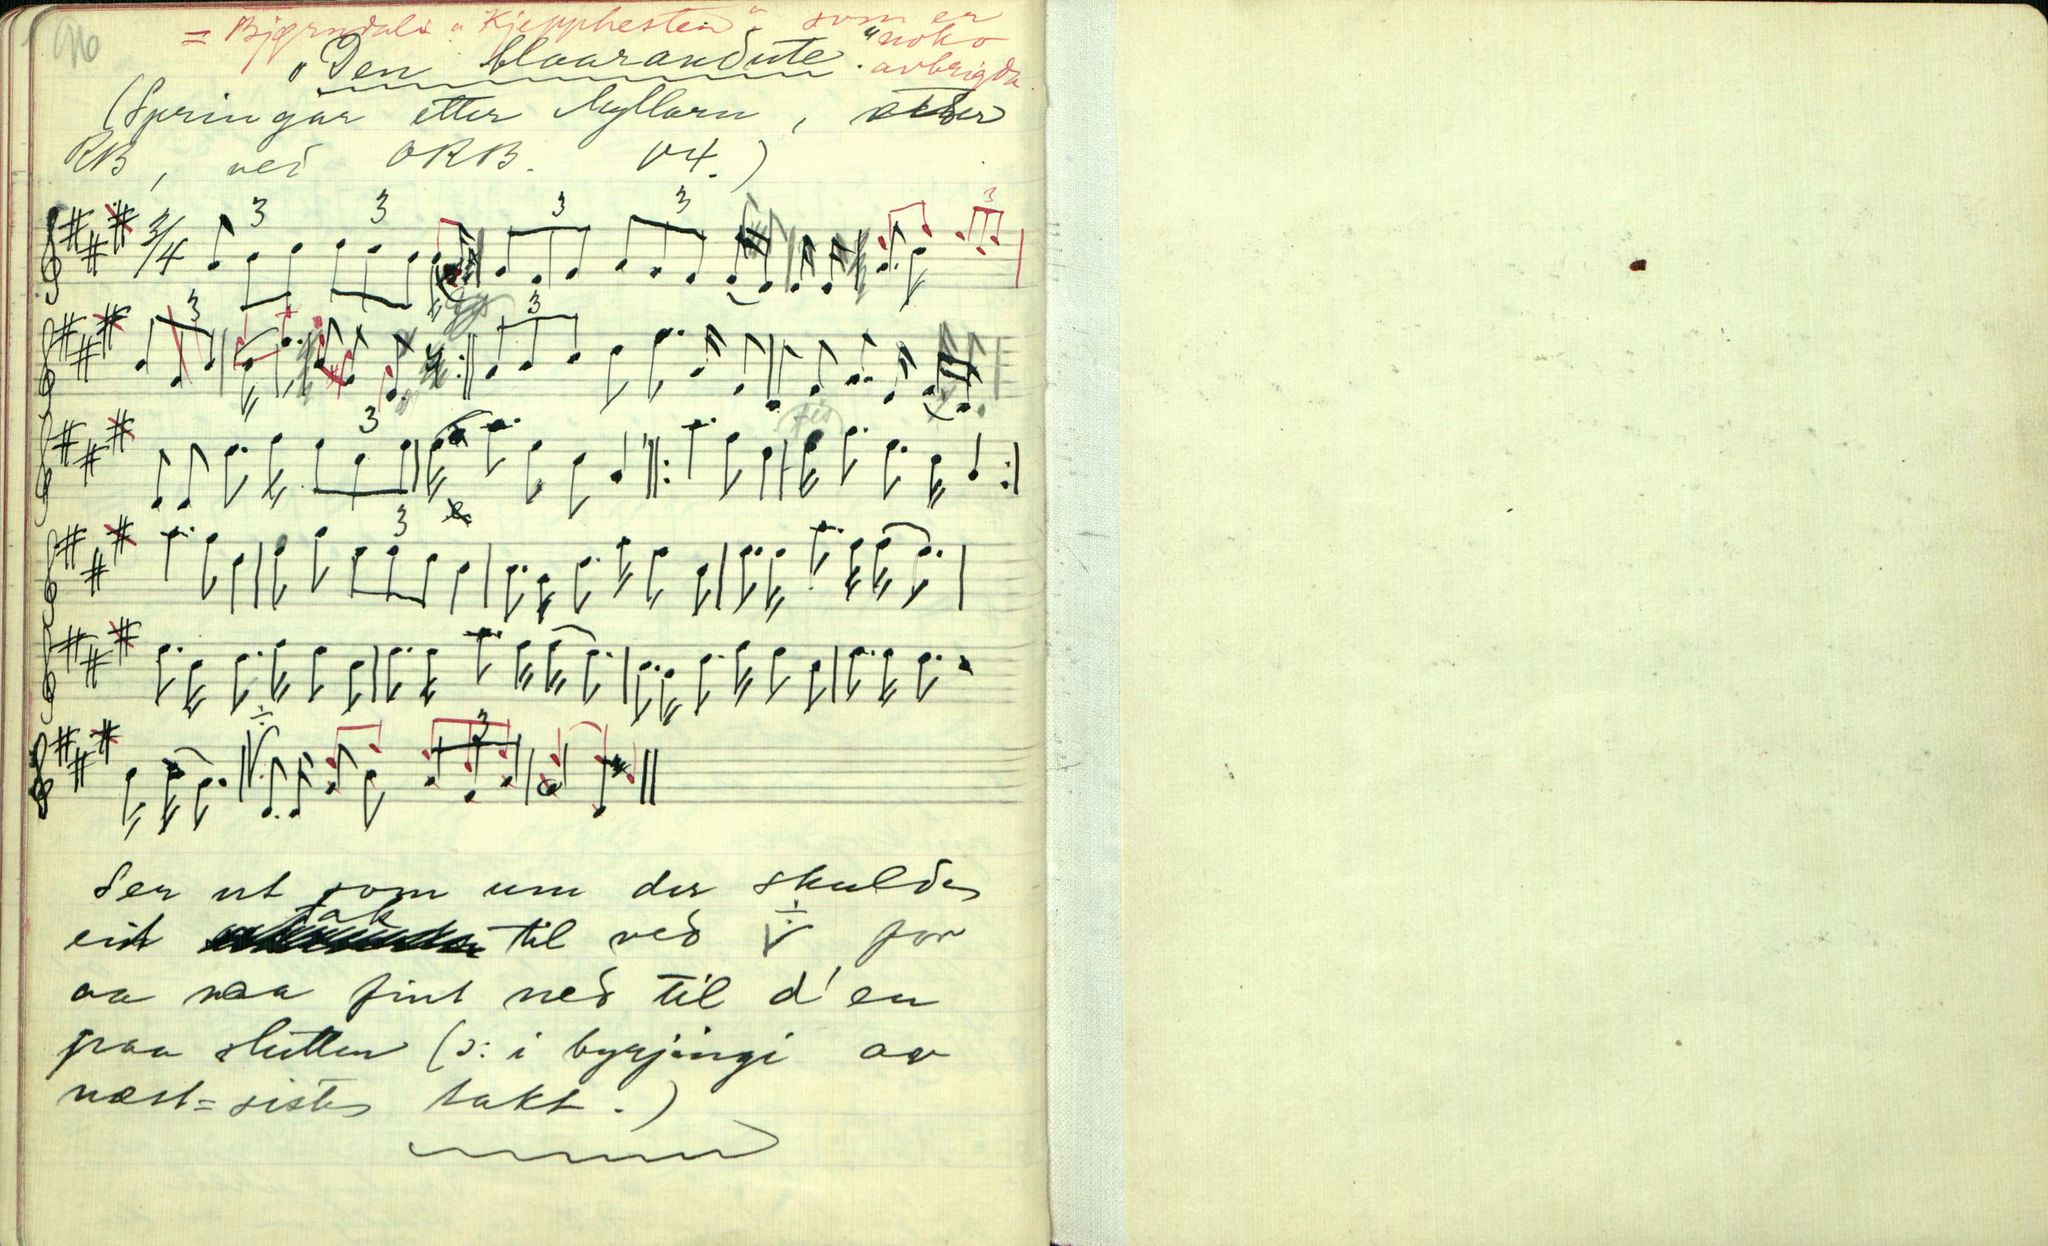 = Bjørndals "Kjepphesten", som er
noko
avbrigda
"Den blaarandute."
(Springar etter Myllarn, etter
RB, ved ORB. V4.)
3/4 3 3 3 3 3
3 3
fis
3
3
÷ 3
Ser ut som um der skulde
eit tak til ved ÷V for
aa naa fint ned til d'en
paa slutten (ɔ: i byrjingi av
næst=siste takt.)